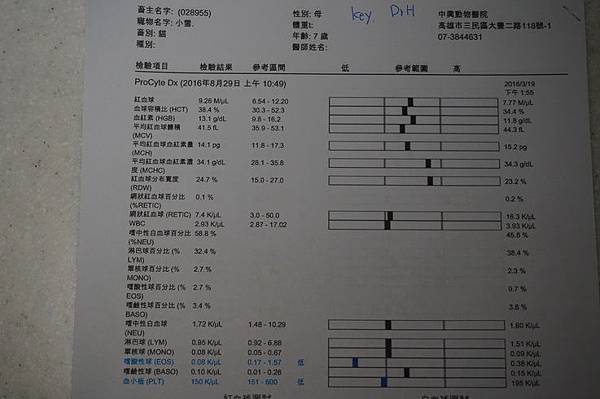 畜主名字: (028955) 性別: 母 key. DrH 中興動物醫院
寵物名字: 小雪. 體重: 高雄市三民區大豐二路118號-1
畜別: 貓 年齡: 7 歲 07-3844631
種別: 醫師姓名:
檢驗項目 檢驗結果 參考區間 低 參考範圍 高
ProCyte Dx (2016年8月29日 上午 10:49) 2016/3/19
下午 1:55
紅血球 9.26 M/μL 6.54 - 12.20 7.77 M/μL
血球容積比 (HCT) 38.4 % 30.3 - 52.3 34.4 %
血紅素 (HGB) 13.1 g/dL 9.8 - 16.2 11.8 g/dL
平均紅血球體積 41.5 fL 35.9 - 53.1 44.3 fL
(MCV)
平均紅血球血紅素量 14.1 pg 11.8 - 17.3 15.2 pg
(MCH)
平均紅血球血紅素濃 34.1 g/dL 28.1 - 35.8 34.3 g/dL
度 (MCHC)
紅血球分布寬度 24.7 % 15.0 - 27.0 23.2 %
(RDW)
網狀紅血球百分比 0.1 % 0.2 %
(%RETIC)
網狀紅血球 (RETIC) 7.4 K/μL 3.0 - 50.0 16.3 K/μL
WBC 2.93 K/μL 2.87 - 17.02 3.93 K/μL
嗜中性白血球百分比 58.8 % 45.8 %
(%NEU)
淋巴球百分比 (% 32.4 % 38.4 %
LYM)
單核球百分比 (% 2.7 % 2.3 %
MONO)
嗜酸性球百分比 (% 2.7 % 9.7 %
EOS)
嗜鹼性球百分比 (% 3.4 % 3.8 %
BASO)
嗜中性白血球 1.72 K/μL 1.48 - 10.29 1.80 K/μL
(NEU)
淋巴球 (LYM) 0.95 K/μL 0.92 - 6.88 1.51 K/μL
單核球 (MONO) 0.08 K/μL 0.05 - 0.67 0.09 K/μL
嗜酸性球 (EOS) 0.08 K/μL 0.17 - 1.57 低 0.38 K/μL
嗜鹼性球 (BASO) 0.10 K/μL 0.01 - 0.26 0.15 K/μL
血小板 (PLT) 150 K/μL 151 - 600 低 195 K/μL